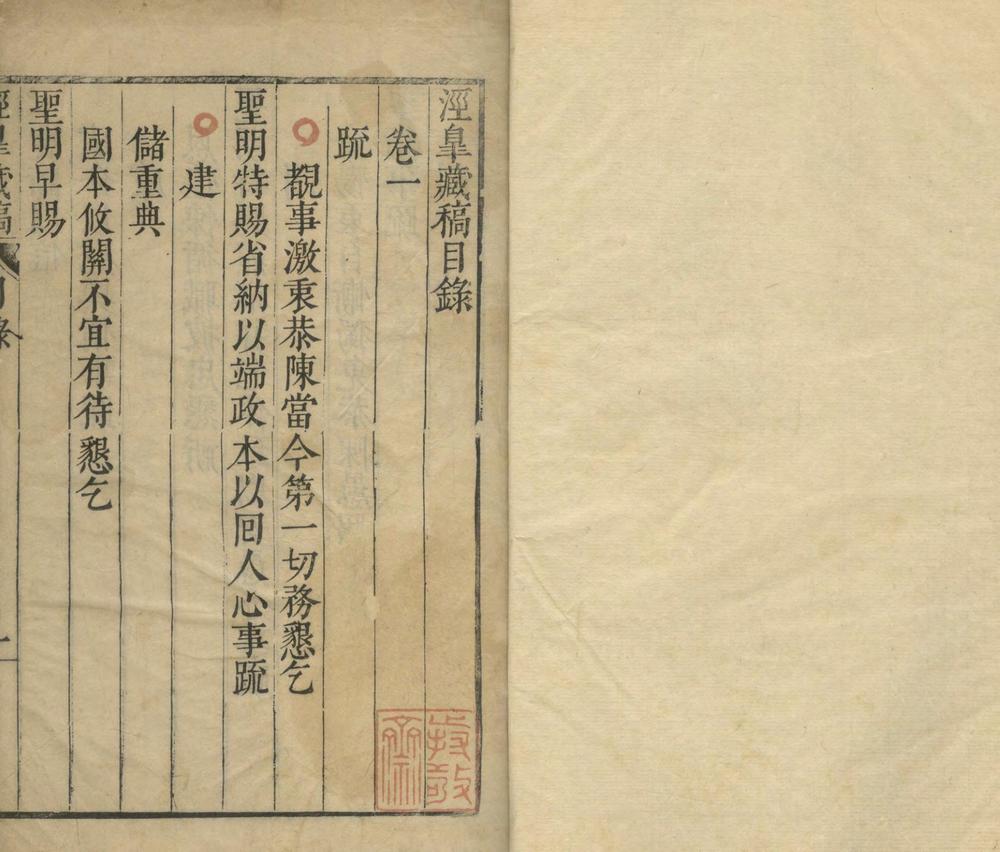 涇臯藏稿目錄
卷一
疏
覩事激衷恭陳當今第一切務懇乞
聖明特賜省納以端政本以囘人心事疏
建
儲重典
國本攸關不宜有待懇乞
聖明早賜